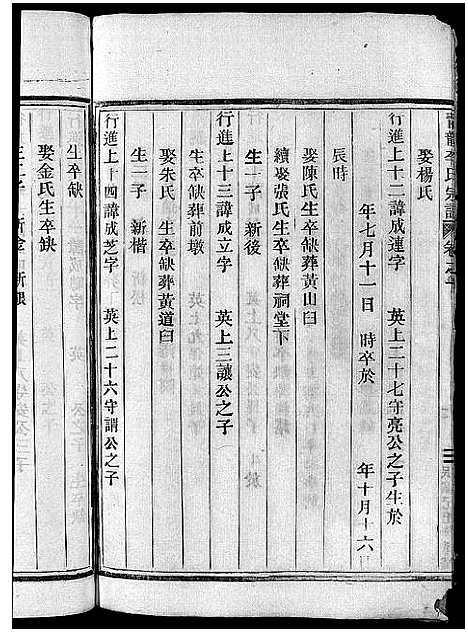 李氏宗譜
娶楊氏
行進上十二諱成連字　英上二十七守亮公之子生於
年七月十一日　時卒於　年十月十六日
辰時
娶陳氏生卒缺葬黃山臼
續娶張氏生卒缺葬祠堂下
生一子　新後
行進上十三諱成立字　英上三讓公之子
生卒缺葬前墩
娶朱氏　生卒缺葬黃道臼
生一子　新楷
行進上十四諱成芝字　英上二十六守謂公之子
生卒缺
娶金氏生卒缺